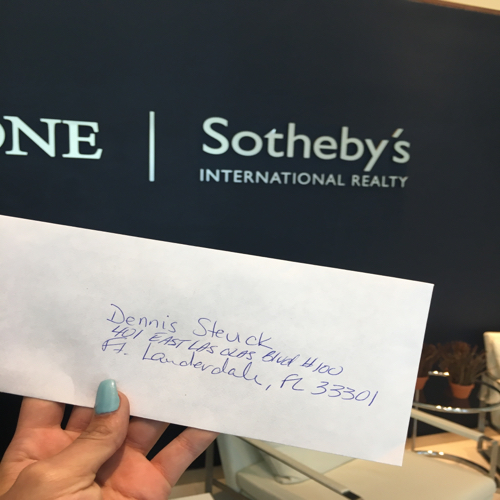 ONE | Sotheby's
INTERNATIONAL REALTY
Dennis Steuck
401 EAST LAS OLAS Blvd #100
Ft. Lauderdale, FL 33301